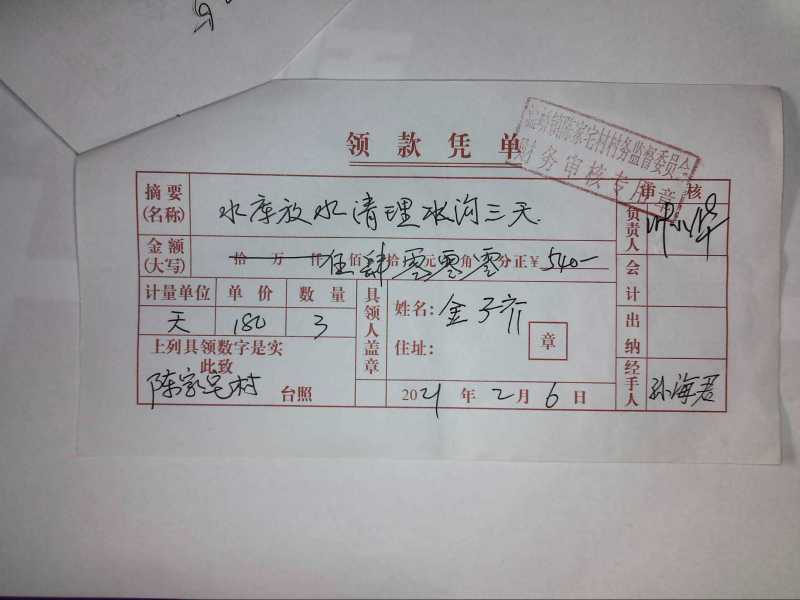 领款凭单
陈家宅村村务监督委员会
财务审核专用章
摘要(名称) 水库放水清理水沟三天 审核
金额(大写) 拾万仟伍佰肆拾零元零角零分正¥540—
负责人
计量单位 单价 数量 具领人盖章 姓名:金子 会计
天 180 3 章 出纳
上列具领数字是实 住址:
此致
陈家宅村 台照 2021年2月6日 经手人 孙海君